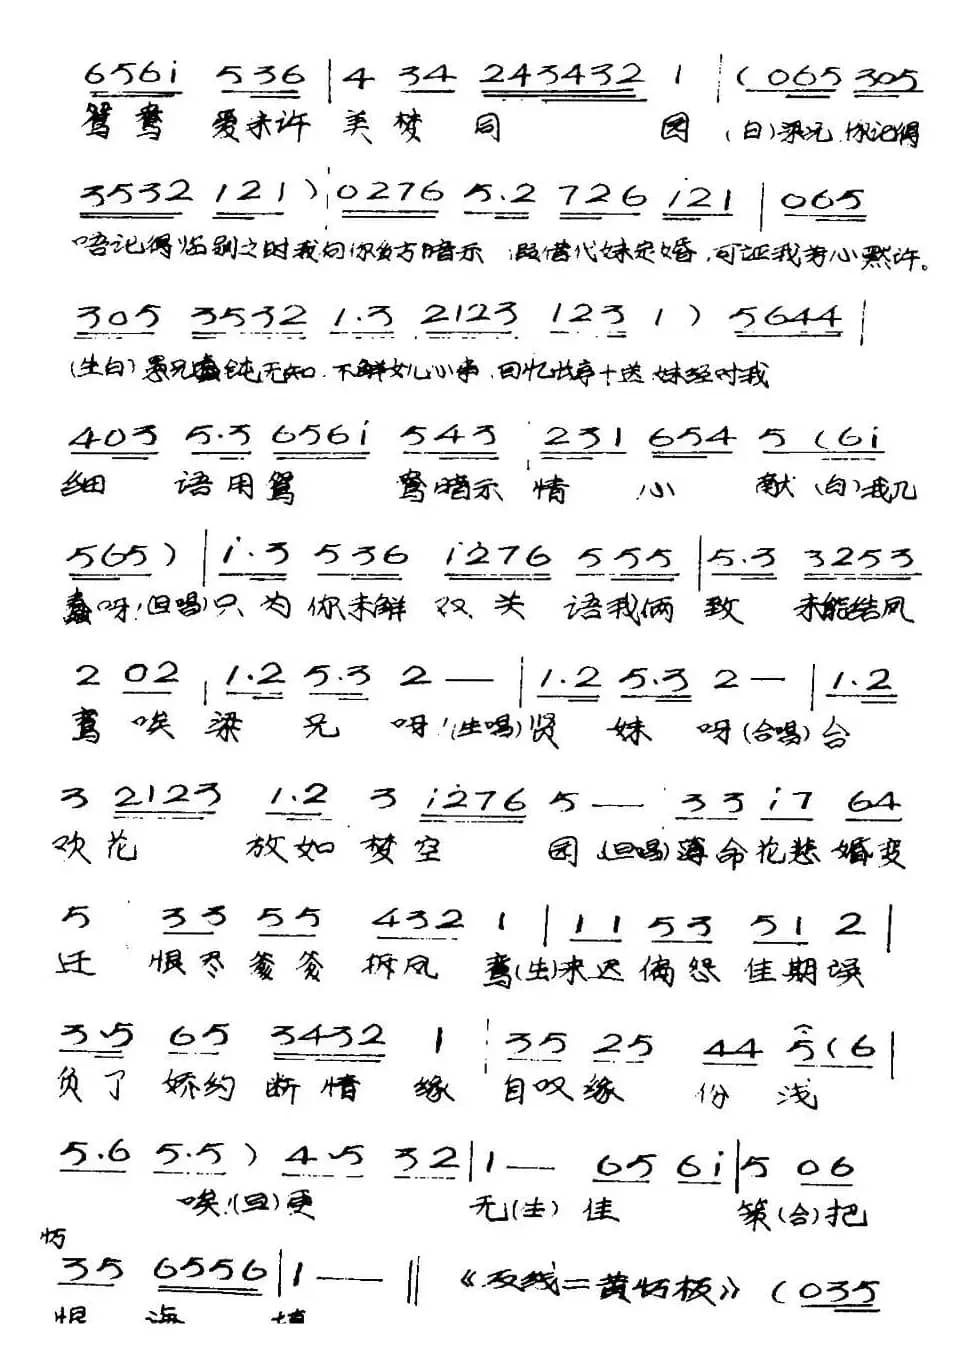 6561 536 | 4 34 243432 1 | (065 305
鸳鸯 爱未许 美梦 同 园 (白)梁兄,你记得
3532 121) 0276 5.2 726 i21 | 065
唔记得临别之时我向你多方暗示 假借代妹定婚,可证我芳心默许。
305 3532 1.3 2123 123 1) 5644 |
(生白)愚兄蠢钝无知,不解女儿心事,回忆当十送,妹经对我
403 5.3 656i 543 231 654 5 (6i
细 语用鸳 鸯暗示 情 心 献 (白)我几
565) | i.3 536 i276 555 | 5.3 3253
蠢呀!(旦唱)只为你未解 双 关 语我俩 致 未能结凤
2 02 1.2 5.3 2 — | 1.2 5.3 2 — | 1.2
鸾 唉 梁 兄 呀!(生唱)贤 妹 呀(合唱)合
3 2123 1.2 3 i276 5 — 33 i7 64
欢花 放如 梦空 园 (旦唱)薄命花悲婚变
5 33 55 432 1 | 11 53 51 2 |
迁 恨尽爹爹拆凤 鸾(生)来迟倘怨佳期误
3.5 65 3432 1 35 25 44 5(6 |
负了 娇约断情 缘 自叹缘 份 浅
5.6 5.5) 4.5 32 | 1 — 65 6i | 5 06
唉!(旦)更 无(生)佳 策(合)把
35 6556 | 1 — — ‖ 《反线二黄忭板》 (035
恨 海 填